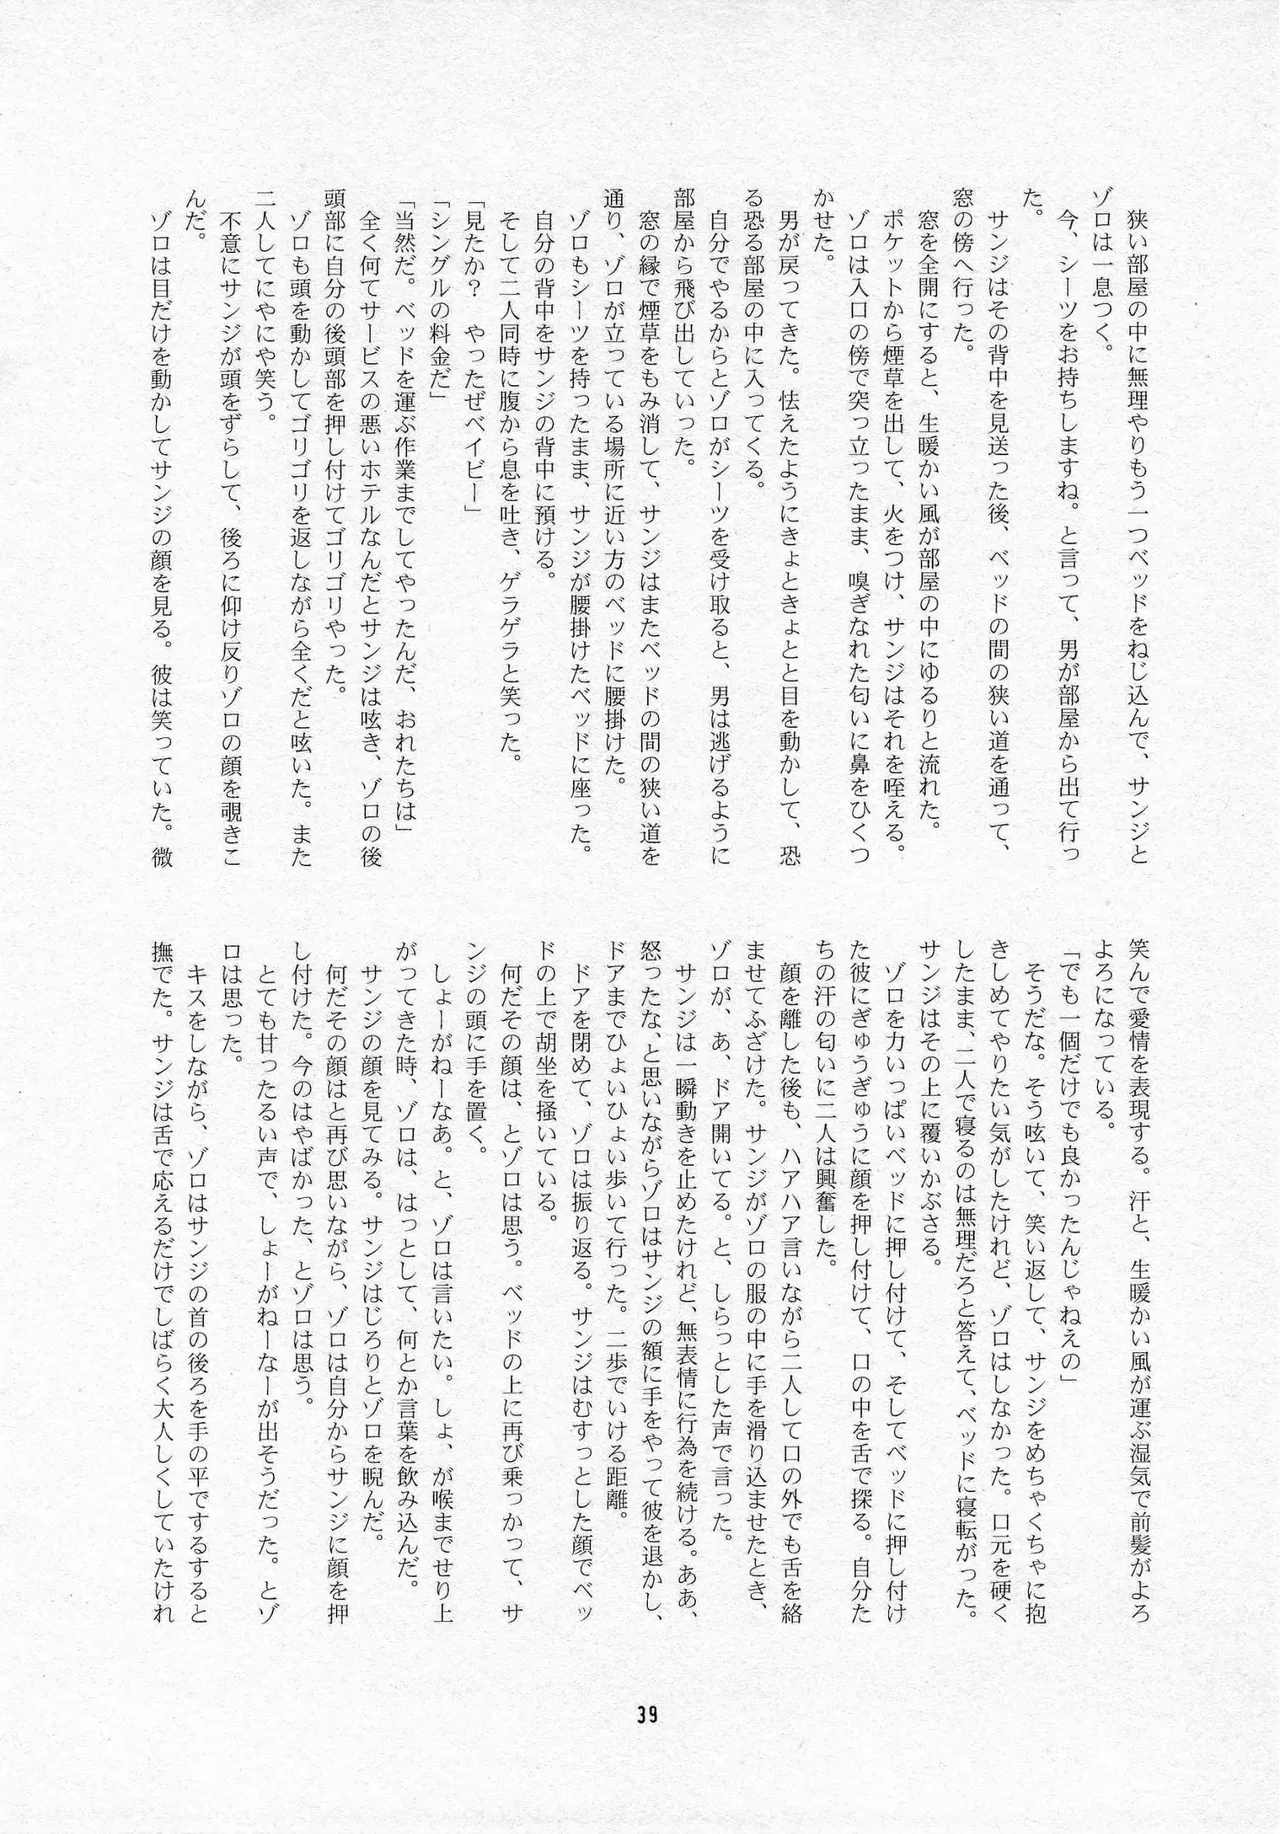 狭い部屋の中に無理やりもう一つベッドをねじ込んで、サンジと
ゾロは一息つく。
今、シーツをお持ちしますね。と言って、男が部屋から出て行っ
た。
サンジはその背中を見送った後、ベッドの間の狭い道を通って、
窓の傍へ行った。
窓を全開にすると、生暖かい風が部屋の中にゆるりと流れた。
ポケットから煙草を出して、火をつけ、サンジはそれを咥える。
ゾロは入口の傍で突っ立ったまま、嗅ぎなれた匂いに鼻をひくつ
かせた。
男が戻ってきた。怯えたようにきょときょとと目を動かして、恐
る恐る部屋の中に入ってくる。
自分でやるからとゾロがシーツを受け取ると、男は逃げるように
部屋から飛び出していった。
窓の縁で煙草をもみ消して、サンジはまたベッドの間の狭い道を
通り、ゾロが立っている場所に近い方のベッドに腰掛けた。
ゾロもシーツを持ったまま、サンジが腰掛けたベッドに座った。
自分の背中をサンジの背中に預ける。
そして二人同時に腹から息を吐き、ゲラゲラと笑った。
「見たか？　やったぜベイビー」
「シングルの料金だ」
「当然だ。ベッドを運ぶ作業までしてやったんだ、おれたちは」
全く何てサービスの悪いホテルなんだとサンジは呟き、ゾロの後
頭部に自分の後頭部を押し付けてゴリゴリやった。
ゾロも頭を動かしてゴリゴリを返しながら全くだと呟いた。また
二人してにやにや笑う。
不意にサンジが頭をずらして、後ろに仰け反りゾロの顔を覗きこ
んだ。
ゾロは目だけを動かしてサンジの顔を見る。彼は笑っていた。微
笑んで愛情を表現する。汗と、生暖かい風が運ぶ湿気で前髪がよろ
よろになっている。
「でも一個だけでも良かったんじゃねえの」
そうだな。そう呟いて、笑い返して、サンジをめちゃくちゃに抱
きしめてやりたい気がしたけれど、ゾロはしなかった。口元を硬く
したまま、二人で寝るのは無理だろと答えて、ベッドに寝転がった。
サンジはその上に覆いかぶさる。
ゾロを力いっぱいベッドに押し付けて、そしてベッドに押し付け
た彼にぎゅうぎゅうに顔を押し付けて、口の中を舌で探る。自分た
ちの汗の匂いに二人は興奮した。
顔を離した後も、ハアハア言いながら二人して口の外でも舌を絡
ませてふざけた。サンジがゾロの服の中に手を滑り込ませたとき、
ゾロが、あ、ドア開いてる。と、しらっとした声で言った。
サンジは一瞬動きを止めたけれど、無表情に行為を続ける。ああ、
怒ったな、と思いながらゾロはサンジの額に手をやって彼を退かし、
ドアまでひょいひょい歩いて行った。二歩でいける距離。
ドアを閉めて、ゾロは振り返る。サンジはむすっとした顔でベッ
ドの上で胡坐を掻いている。
何だその顔は、とゾロは思う。ベッドの上に再び乗っかって、サ
ンジの頭に手を置く。
しょーがねーなあ。と、ゾロは言いたい。しょ、が喉までせり上
がってきた時、ゾロは、はっとして、何とか言葉を飲み込んだ。
サンジの顔を見てみる。サンジはじろりとゾロを睨んだ。
何だその顔はと再び思いながら、ゾロは自分からサンジに顔を押
し付けた。今のはやばかった、とゾロは思う。
とても甘ったるい声で、しょーがねーなーが出そうだった。とゾ
ロは思った。
キスをしながら、ゾロはサンジの首の後ろを手の平でするすると
撫でた。サンジは舌で応えるだけでしばらく大人しくしていたけれ
39